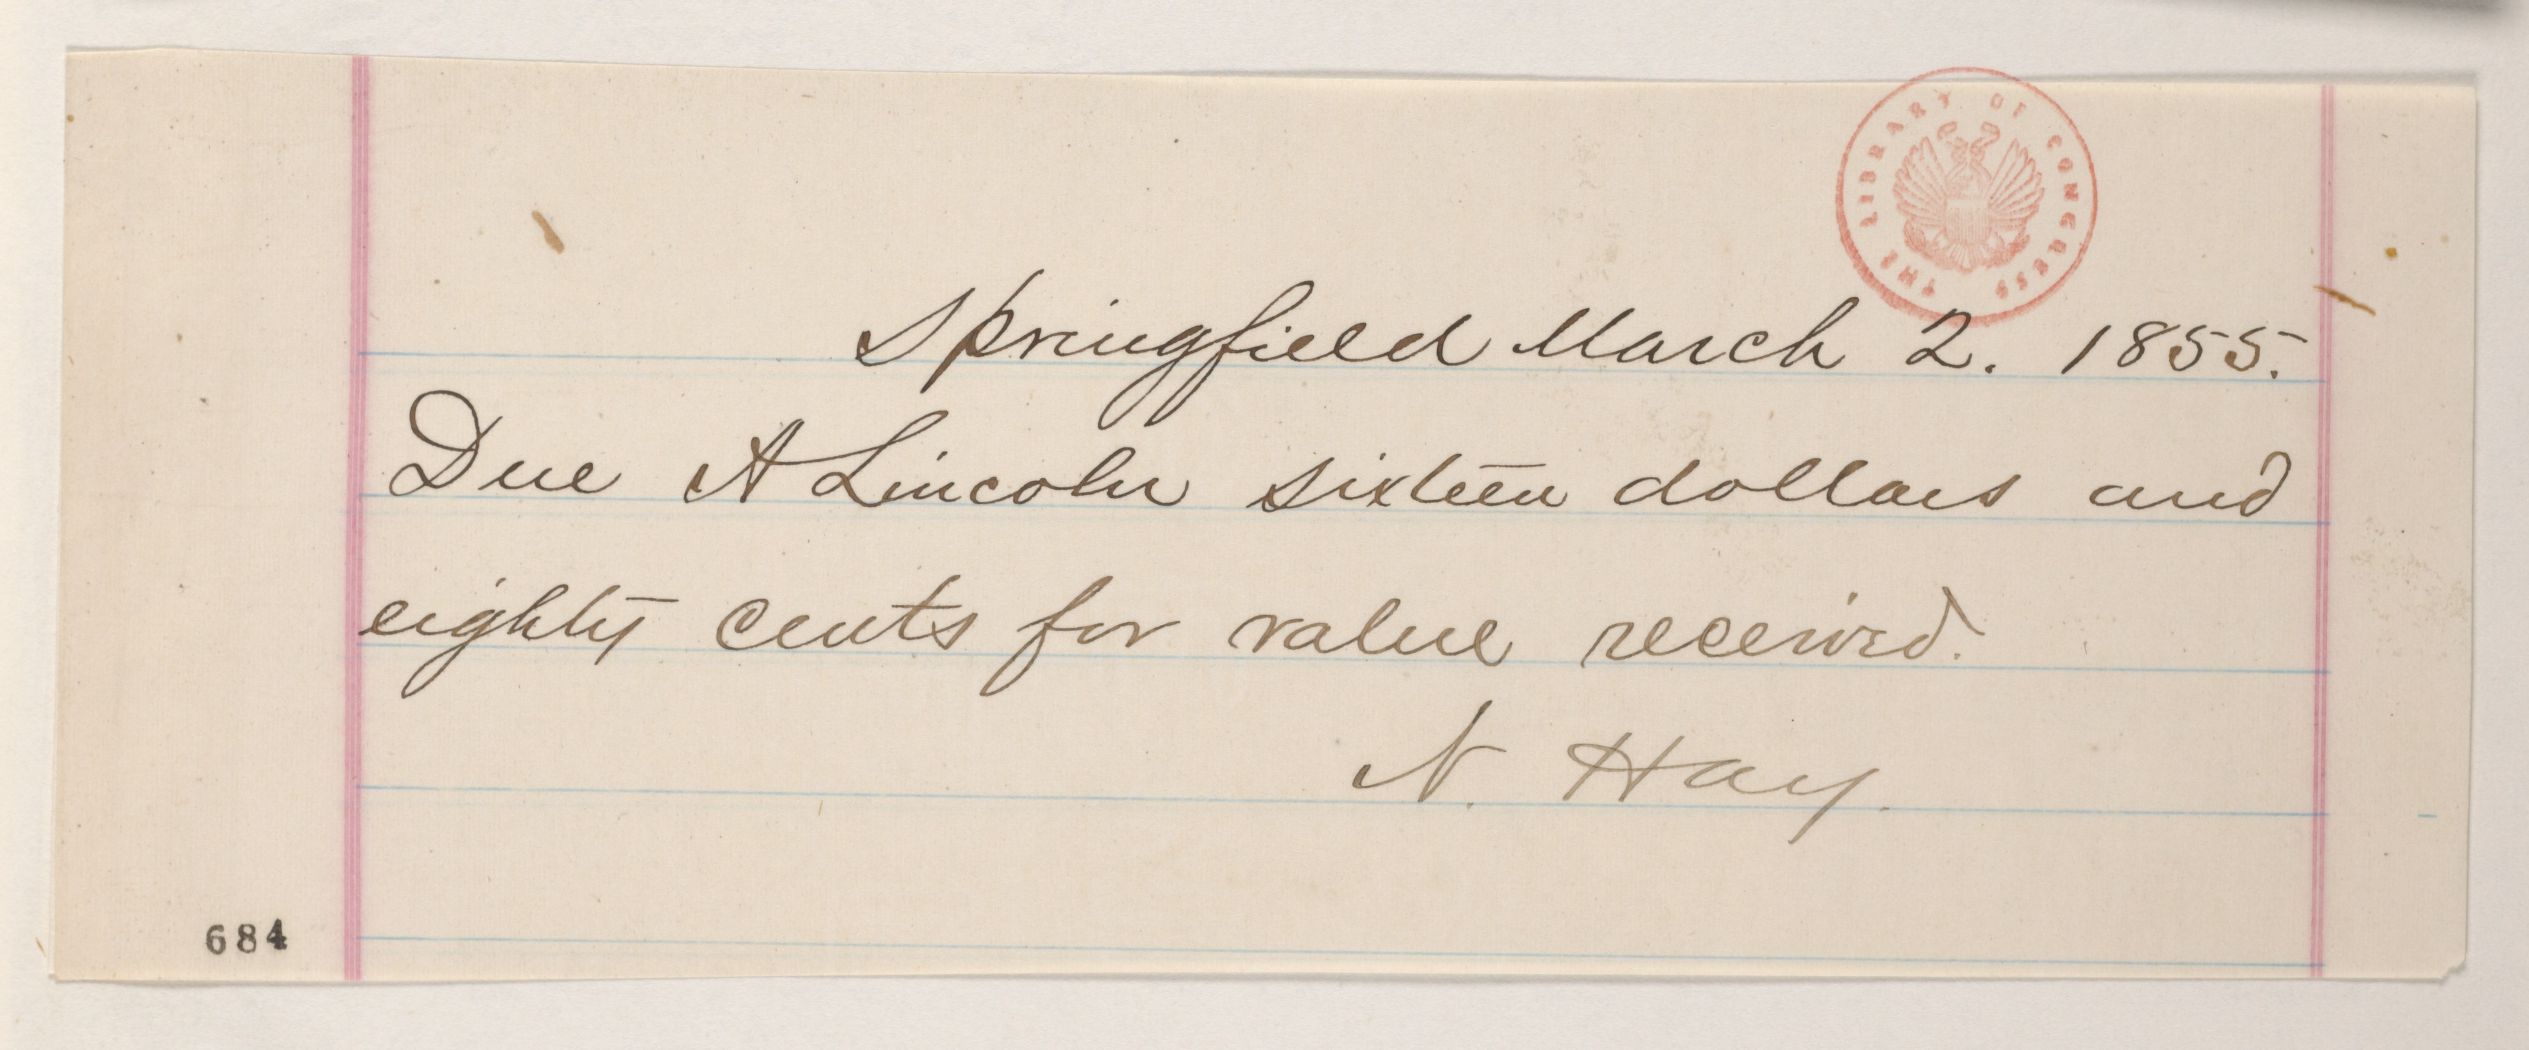 THE LIBRARY OF CONGRESS
Springfield March 2. 1855.
Due A Lincoln sixteen dollars and
eighty cents for value received.
N. Hay.
684